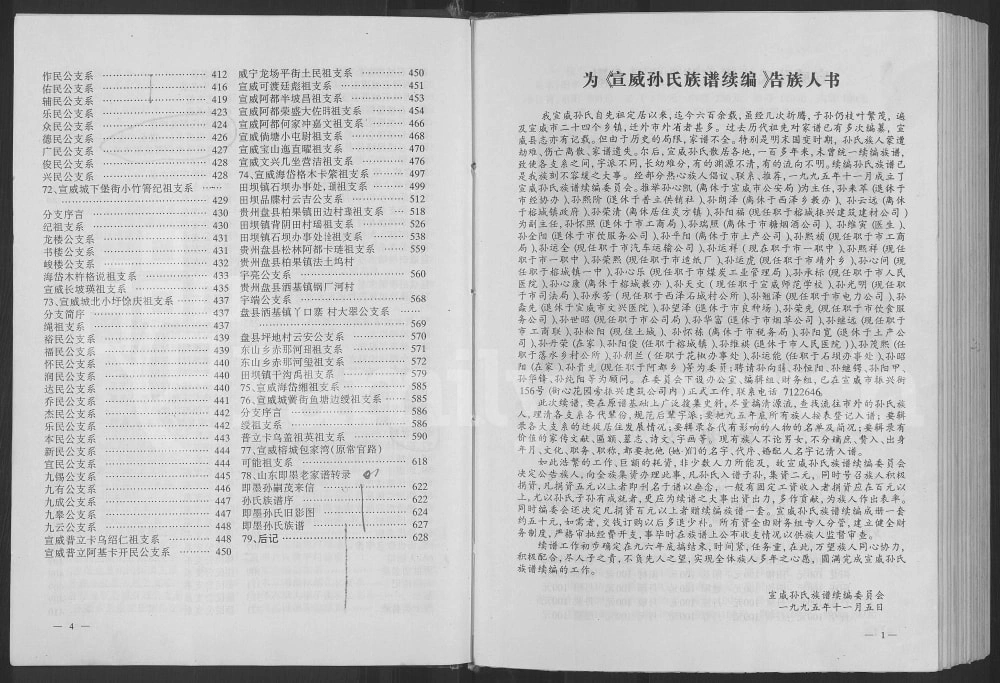 作民公支系 ………………… 412
佑民公支系 ………………… 416
辅民公支系 ………………… 419
乐民公支系 ………………… 423
众民公支系 ………………… 424
德民公支系 ………………… 426
广民公支系 ………………… 427
俊民公支系 ………………… 428
兴民公支系 ………………… 428
72、宣威城下堡街小竹箐纪祖支系 ……
………………… 429
分支序言 ………………… 430
纪祖支系 ………………… 430
龙楼公支系 ………………… 431
书楼公支系 ………………… 431
峻楼公支系 ………………… 432
海岱木柞格说祖支系 ………… 433
宣威长坡瑛祖支系 ………… 435
73、宣威城北小圩馀庆祖支系 …… 437
分支简序 ………………… 437
绳祖支系 ………………… 437
裕民公支系 ………………… 439
福民公支系 ………………… 439
怀民公支系 ………………… 440
润民公支系 ………………… 440
达民公支系 ………………… 440
乔民公支系 ………………… 441
杰民公支系 ………………… 442
乐民公支系 ………………… 442
本民公支系 ………………… 443
新民公支系 ………………… 444
宜民公支系 ………………… 444
九锡公支系 ………………… 445
九有公支系 ………………… 446
九成公支系 ………………… 447
九皋公支系 ………………… 447
九云公支系 ………………… 448
宣威普立卡乌绍仁祖支系 ……… 448
宣威普立阿基卡开民公支系 …… 450
威宁龙场平街土民祖支系 ……… 450
宣威可渡廷彪祖支系 ………… 451
宣威阿都半坡昌祖支系 ……… 453
宣威阿都荣盛大佐祖支系 …… 454
宣威阿都何家冲嘉文祖支系 …… 466
宣威倘塘小屯尉祖支系 ……… 468
宣威宝山迤直曜祖支系 ……… 470
宣威文兴几坐营洁祖支系 …… 476
74、宣威海岱格木卡綮祖支系 …… 497
田坝镇石坝办事处,祖支系 …… 499
田坝品牒村云吉公支系 ……… 512
贵州盘县柏果镇田边村祖支系 … 518
田坝镇背阴田村瑶祖支系 …… 526
田坝镇石坝办事处祖支系 …… 538
贵州盘县松林阿都卡琎祖支系 … 559
贵州盘县柏果镇法土坞村
宇亮公支系 ………………… 560
贵州盘县洒基镇锅厂河村
宇端公支系 ………………… 568
盘县洒基镇丫口寨 村大翠公支系 ……
………………… 569
盘县坪地村云安公支系 ……… 570
东山乡赤那河珇祖支系 ……… 571
东山乡赤那河玺祖支系 ……… 572
田坝镇干沟禹祖支系 ………… 579
75、宣威海岱缃祖支系 ………… 585
76、宣威城篑街鱼塘边绶祖支系 …… 585
分支序言 ………………… 586
绶祖支系 ………………… 586
普立卡乌盖祖英祖支系 ……… 590
77、宣威榕城包家湾(原常官路)
可能祖支系 ………………… 618
78、山东即墨老家谱转录
即墨孙嗣茂来信 ………… 622
孙氏族谱序 ………………… 622
即墨孙氏旧影图 ………… 624
即墨孙氏族谱 ………………… 627
79、后记 ………………… 628
— 4 —
为《宣威孙氏族谱续编》告族人书
我宣威孙氏自先祖定居以来,迄今六百余载,虽经几次折腾,子孙仍枝叶繁茂,遍
及宣威市二十四个乡镇,迁外市外省者甚多。过去历代祖先对家谱已有多次编纂,宣
威县志亦有记载。但由于历史的局限,家谱不全。特别是明末国变时期,孙氏族人蒙遭
劫难,伤亡离散,家谱遗失。尔后,宣威孙氏散居各地,一百多年来,未曾统一续编族谱,
致使各支系之间,字派不同,长幼难分,有的渊源不清,有的流向不明。续编孙氏族谱已
是我族刻不容缓之大事。经部分热心族人倡议、联系、推荐,一九九五年十一月成立了
宣威孙氏族谱续编委员会。推举孙心凯(离休于宣威市公安局)为主任,孙来萃(退休于
市经协办)、孙熙阶(退休于普立供销社)、孙朗泽(离休于西泽乡教办)、孙云远(离休于
榕城镇政府)、孙荣清(离休居住吴方镇)、孙阳福(现任职于榕城振兴建筑建材公司)
为副主任,孙怀照(退休于市工商局)、孙瑞照(离休于市糖烟酒公司)、孙维寅(医生)、
孙全阳(退休于市饮服务公司)、孙平阳(离休于市土产公司)、孙熙祯(现任职于市工商
局)、孙运全(现任职于市汽车运输公司)、孙运祥(现在职于市一职中)、孙熙祥(现任
职于市一职中)、孙荣熙(现任职于市造纸厂)、孙运虎(现任职于市靖外乡)、孙心问(现
任职于榕城镇一中)、孙心乐(现任职于市煤炭工业管理局)、孙承标(现任职于市人民
医院)、孙心康(离休于榕城教办)、孙天文(现任职于宣威师范学校)、孙光明(现任职
于市司法局)、孙承芳(现任职于西泽石城村公所)、孙翘泽(现任职于市电力公司)、孙
鑫先(退休于宣威市文兴医院)、孙望泽(退休于市良种场)、孙荣先(现任职于市饮食服
务公司)、孙世昭(现任职于市公司局)、孙华富(退休于市烟草公司)、孙继远(现任职于
市工商联)、孙松阳(现住土城)、孙怀栋(离休于市税务局)、孙阳宽(退休于市土产公
司)、孙丹荣(在家)、孙阳俊(任职于榕城镇)、孙维祺(退休于市人民医院))、孙茂熙(任
职于落水乡村公所)、孙朝兰(任职于花椒办事处)、孙运能(任职于石坝办事处)、孙昭
阳(在家)、孙晋先(现任职于阿都乡)等为委员;聘请孙向韩、孙恒阳、孙继锷、孙阳甲、
孙华锋、孙灿阳等为顾问。在委员会下设办公室、编辑组、财务组,已在宣威市振兴街
156号(街心花园旁振兴建筑公司内)正式工作,联系电话7122646。
此次续谱,要在原谱基础上广泛搜集史料,尽量搞清源流,查找流往市外的孙氏族
人,理清各支系各代辈份,规范后辈字派;要把九五年底所有族人按表登记入谱;要辑
录各大支系的迁徙居住发展情况;要辑录各代有影响的人物的名单及简况;要辑录有
价值的家传文献、匾额、墓志、诗文、字画等。现有族人不论男女,不分嫡庶、赘入、出身
年月、文化、职务、职称,都要把他(她)们的名字、代序、婚配人名字记清入谱。
如此浩繁的工作,巨额的耗资,非少数人力所能及,故宣威孙氏族谱续编委员会
决定公告族人,向全族集资办理此事。凡孙氏入谱子孙,集资二元,同时号召族人积极
捐资,凡捐资五元以上者即刊名于谱以垂念,一般有固定工资收入者捐资应在百元以
上,尤以孙氏子孙有成就者,更应为续谱之大事出资出力,多作贡献,为族人作出表率。
同时编委会还决定凡捐资百元以上者赠续编族谱一套。宣威孙氏族谱续编成册一套
约五十元,如需者,交钱订购以后多退少补。所有资金由财务组专人分管,建立健全财
务制度,严格审批经费开支,事毕时在族谱上公布收支情况以供族人监督审查。
续谱工作初步确定在九六年底搞结束,时间紧,任务重,在此,万望族人同心协力,
积极配合,尽人子之责,不负先人之望,实现全体族人多年之心愿,圆满完成宣威孙氏
族谱续编的工作。
宣威孙氏族谱续编委员会
一九九五年十一月五日
— 1 —